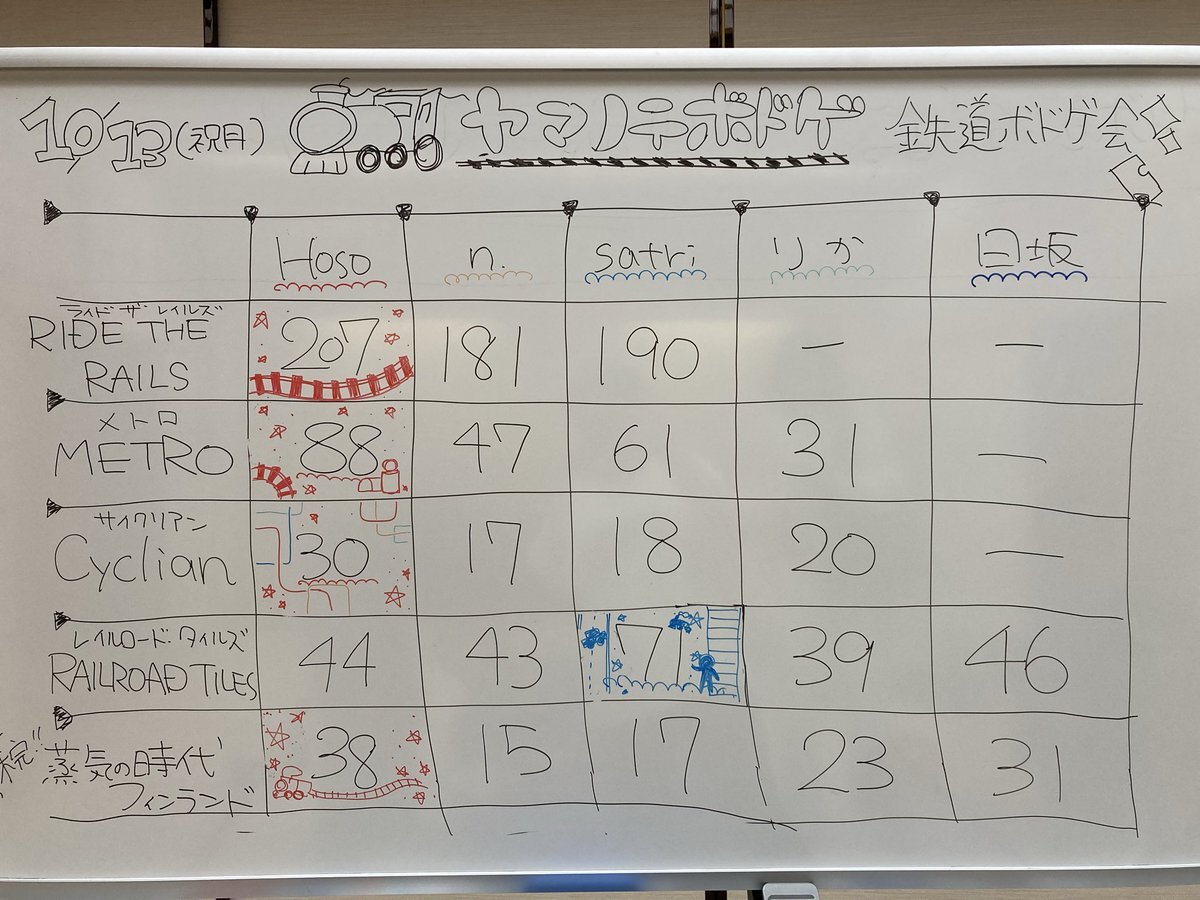 10/13(祝月) ヤマノテボドゲ 鉄道ボドゲ会
Hoso n. satri りか 日坂
ライド ザ レイルズ
RIDE THE RAILS 207 181 190 ー ー
メトロ
METRO 88 47 61 31 ー
サイクリアン
Cyclian 30 17 18 20 ー
レイルロード タイルズ
RAILROAD TILES 44 43 71 39 46
蒸気の時代
フィンランド 38 15 17 23 31